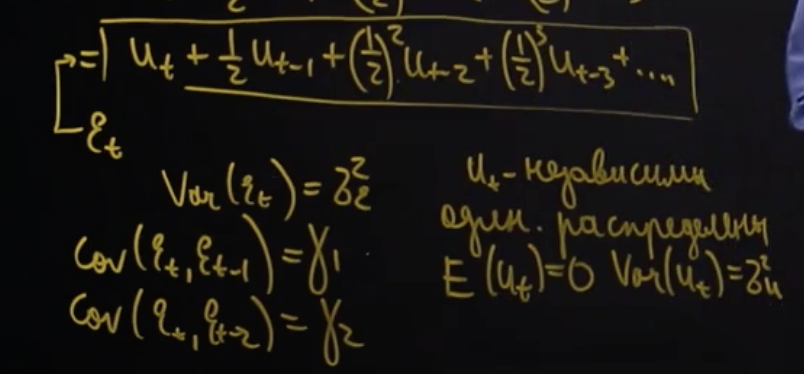 = u_t + 1/2 u_{t-1} + (1/2)^2 u_{t-2} + (1/2)^3 u_{t-3} + ....
ε_t
Var(ε_t) = σ_ε^2
Cov(ε_t, ε_{t-1}) = γ_1
Cov(ε_t, ε_{t-2}) = γ_2
u_t - независимы
один. распределены
E(u_t) = 0 Var(u_t) = σ_u^2